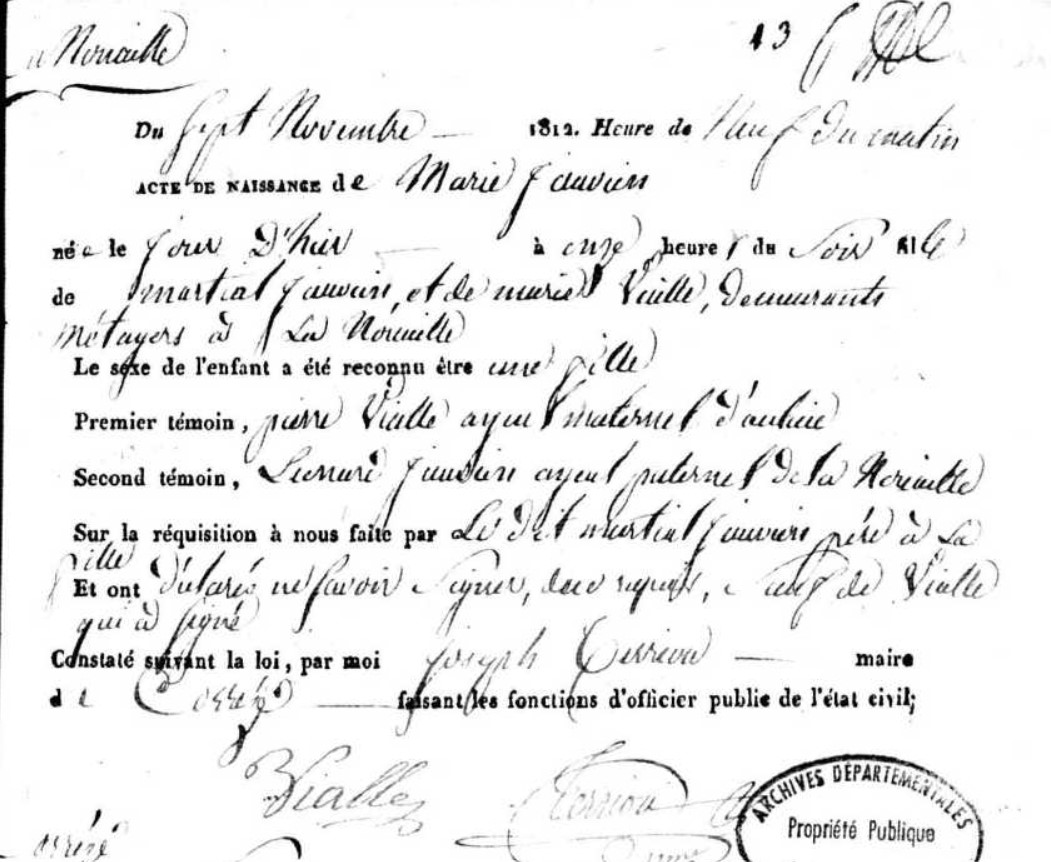 La Noriaille
13
Du Sept Novembre 1812. Heure de Neuf du matin
ACTE DE NAISSANCE de Marie Jauvien
née le jour D'hier à onze heures du Soir fille
de martial jauvien, et de marie Vialle, demeurants
métayers à La Noriaille
Le sexe de l'enfant a été reconnu être une fille
Premier témoin, pierre Vialle ayeul maternel
Second témoin, Leonard jauvien ayeul paternel de la Noriaille
Sur la réquisition à nous faite par Le dit martial jauvien père à La
fille
Et ont déclaré ne savoir signer, de ce requis, Sauf de Vialle
qui à signé
Constaté suivant la loi, par moi joseph Terriou maire
de Corrèze faisant les fonctions d'officier public de l'état civil;
Vialle Terriou
ARCHIVES DÉPARTEMENTALES
Propriété Publique